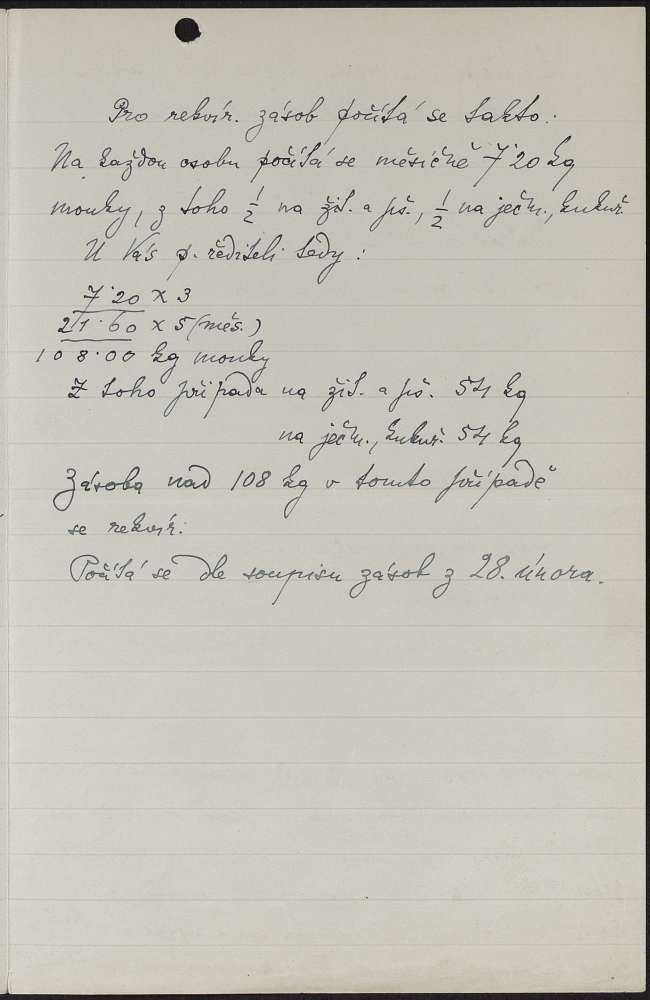 Pro rekvír. zásob počítá se takto:
Na každou osobu počítá se měsíčně 7·20 kg
mouky, z toho ½ na žit. a pš., ½ na ječm., kukuř.
U Vás p. řediteli tedy:
7·20 x 3
21·60 x 5 (měs.)
108·00 kg mouky
Z toho připadá na žit. a pš. 54 kg
na ječm., kukuř. 54 kg
Zásoba nad 108 kg v tomto případě
se rekvír.
Počítá se dle soupisu zásob z 28. února.